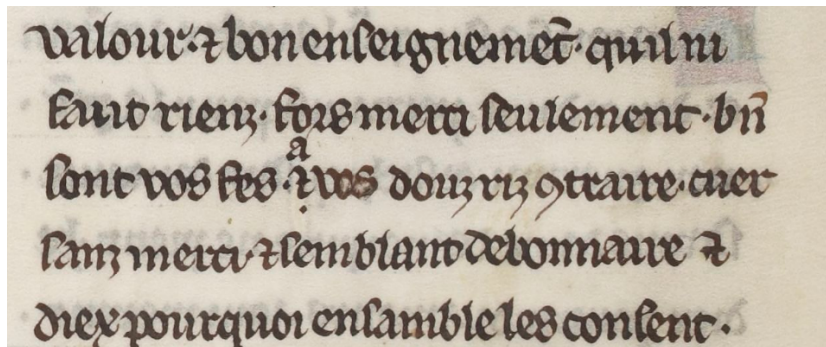 valour · ⁊ bon enseignemēt · quil ni
faut rienz · fors merci seulement · bn̄
sont vos fes · a ⁊ vos douz riz ꝯtraire · cuer
sanz merci · ⁊ semblant debonnaire ⁊
diex pourquoi ensamble les consent ·